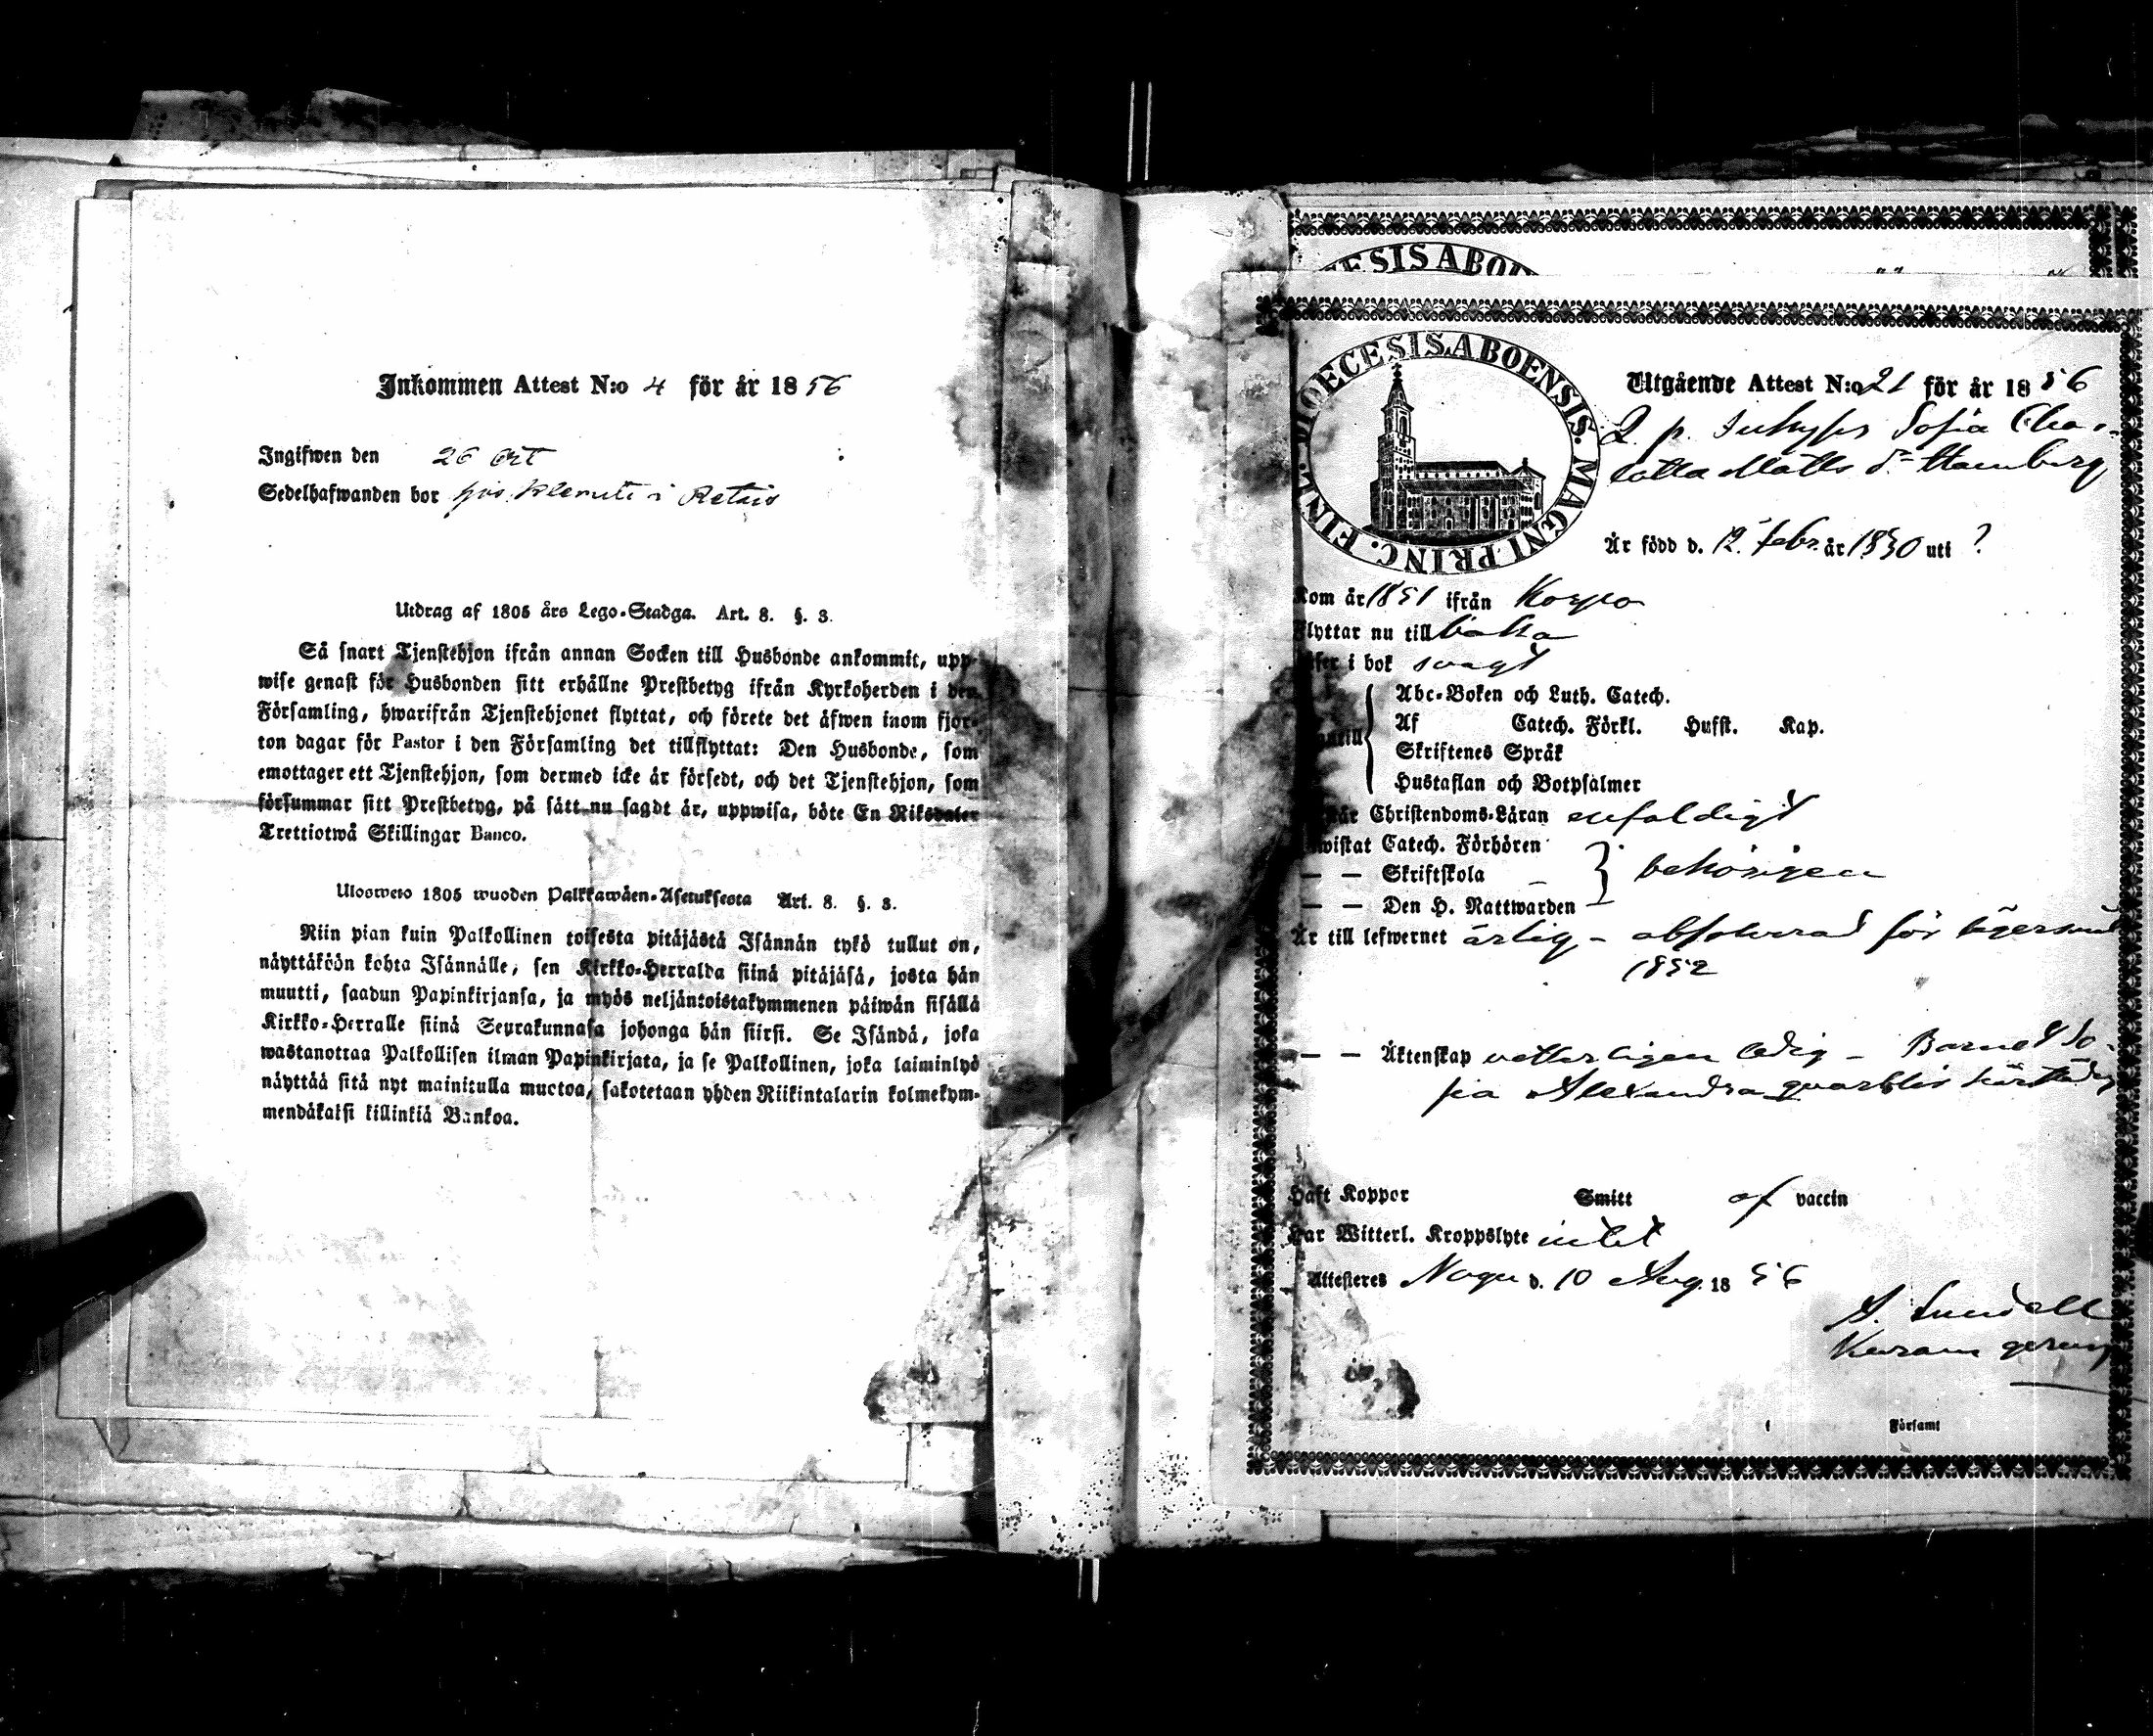 Inkommen Attest N:o 4 för år 1856
Ingifwen den 26 Oct
Sedelhafwanden bor hos Klemets i Retais
Utdrag af 1805 års Lego-Stadga. Art. 8. §. 3.
Så snart Tjenstehjon ifrån annan Socken till Husbonde ankommit, upp-
wise genast för Husbonden sitt erhållne Prestbetyg ifrån Kyrkoherden i den
Församling, hwarifrån Tjenstehjonet flyttat, och förete det äfwen inom fjor-
ton dagar för Pastor i den Församling det tillflyttat: Den Husbonde, som
emottager ett Tjenstehjon, som dermed icke är försedt, och det Tjenstehjon, som
försummar sitt Prestbetyg, på sätt nu sagdt är, uppwisa, böte En Riksdaler
Trettiotwå Skillingar Banco.
Ulosweto 1805 wuoden Palkkawäen-Asetuksesta Art. 8. §. 3.
Niin pian kuin Palkollinen toisesta pitäjästä Isännän tykö tullut on,
näyttäköön kohta Isännälle, sen Kirkko-Herralda siinä pitäjäsä, josta hän
muutti, saadun Papinkirjansa, ja myös neljäntoistakymmenen päiwän sisällä
Kirkko-Herralle siinä Seurakunnasa johonga hän siirsi. Se Isändä, joka
wastanottaa Palkollisen ilman Papinkirjata, ja se Palkollinen, joka laiminlyö
näyttää sitä nyt mainitulla muotoa, sakotetaan yhden Riikintalarin kolmekym-
mendäkaksi killinkiä Bankoa.
ESIS ABO
DIOECESIS ABOENSIS. MAGNI PRINC. FINL.
Utgående Attest N:o 21 för år 1856
Q. p. Inhyses Sofia Char-
lotta Matts dr Hamberg
Är född d. 12 Febr. år 1830 uti ?
Kom år 1851 ifrån Korpo
Flyttar nu till baka
i bok svagt
Abc-Boken och Luth. Catech.
Af Catech. Förkl. Husst. Kap.
Skriftenes Språk
Hustaflan och Botpsalmer
Christendoms-Läran enfaldigt
Catech. Förhören
— — Skriftskola } behörigen
— — Den H. Nattwarden
Är till lefwernet ärlig - absolverad för lägersmål
1852
— — Äktenskap vetterligen ledig - Barnet So-
fia Alexandra qvarblir
Haft Koppor Smitt af vaccin
Har Witterl. Kroppslyte intet
Attesteres Nagu d. 10 Aug. 1856
Församl